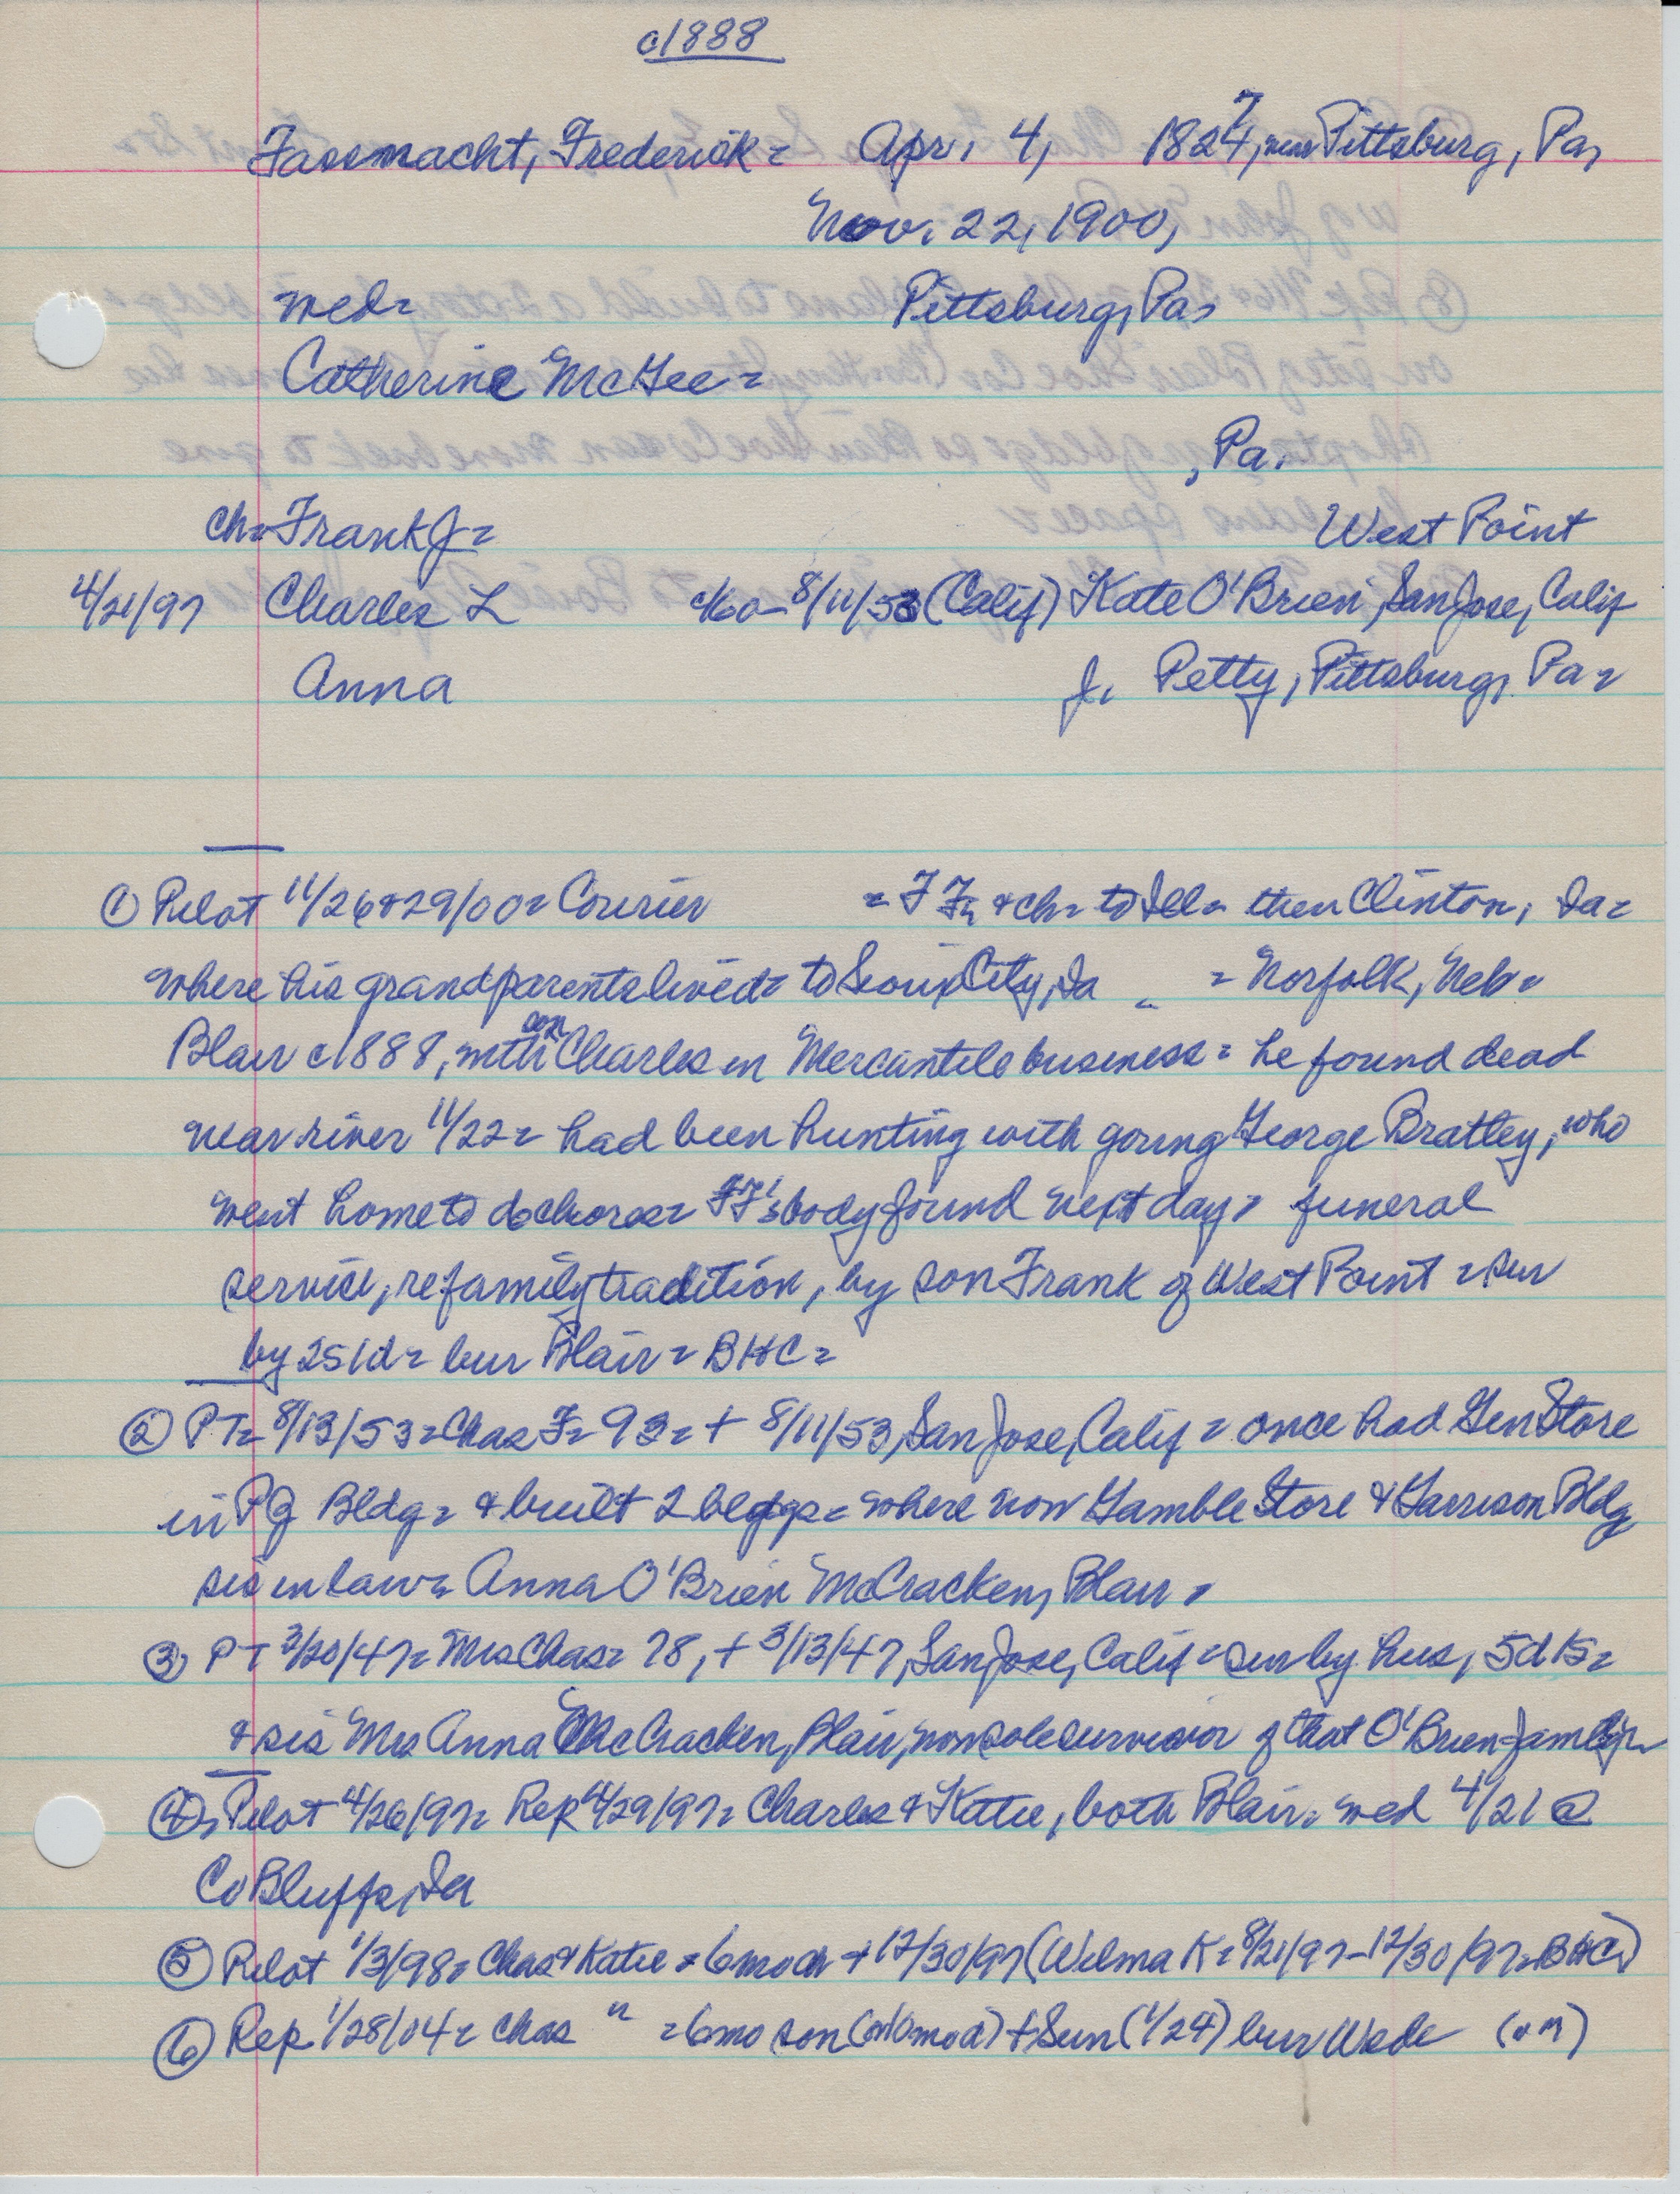 c1888
Fassnacht, Frederick = Apr. 4, 1824, 7 near Pittsburg, Pa,
Nov. 22, 1900,
wed= Pittsburg, Pa,
Catherine McGee =
, Pa.
ch= Frank J = West Point
4/21/97 Charles L c/60-8/11/53 (Calif) Kate O'Brien, San Jose, Calif
Anna J. Petty, Pittsburg, Pa =
① Pilot 11/26&29/00= Courier = F F, & ch= to Ill= then Clinton, Ia=
where his grandparents lived= to Sioux City, Ia = Norfolk, Neb=
Blair c1888, with son Charles in Mercantile business = he found dead
near river 11/22= had been hunting with young George Bratley, who
went home to do chores= FF's body found next day, funeral
service, re family tradition, by son Frank of West Point = sur
by 2s 1d= bur Blair = BHC =
② PT= 8/13/53= Chas F= 93= + 8/11/53, San Jose, Calif = once had Gen Store
in PG Bldg= & built 2 bldgs= where now Gamble Store & Garrison Bldg
sis in law= Anna O'Brien McCracken, Blair,
③ PT 3/20/47= Mrs Chas= 78, + 3/13/47, San Jose, Calif = sur by hus, 5d 1s=
& sis Mrs Anna McCracken, Blair, now sole survivor of that O'Brien family
④, Pilot 4/26/97= Rep 4/29/97= Charles & Katie, both Blair= wed 4/21 @
Co Bluffs, Ia
⑤ Pilot 1/3/98= Chas & Katie = 6 mo ch + 12/30/97 (Wilma K= 8/21/97-12/30/97= BHC)
⑥ Rep 1/28/04= Chas " = 6 mo son (or 10 mo d) + Sun (1/24) bur Wede